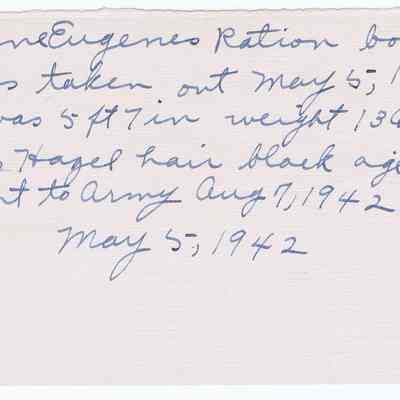 neEugenes Ration bo
s taken out May 5, 1
was 5 ft 7 in weight 136
Hazel hair black age
t to Army Aug 7, 1942
May 5, 1942